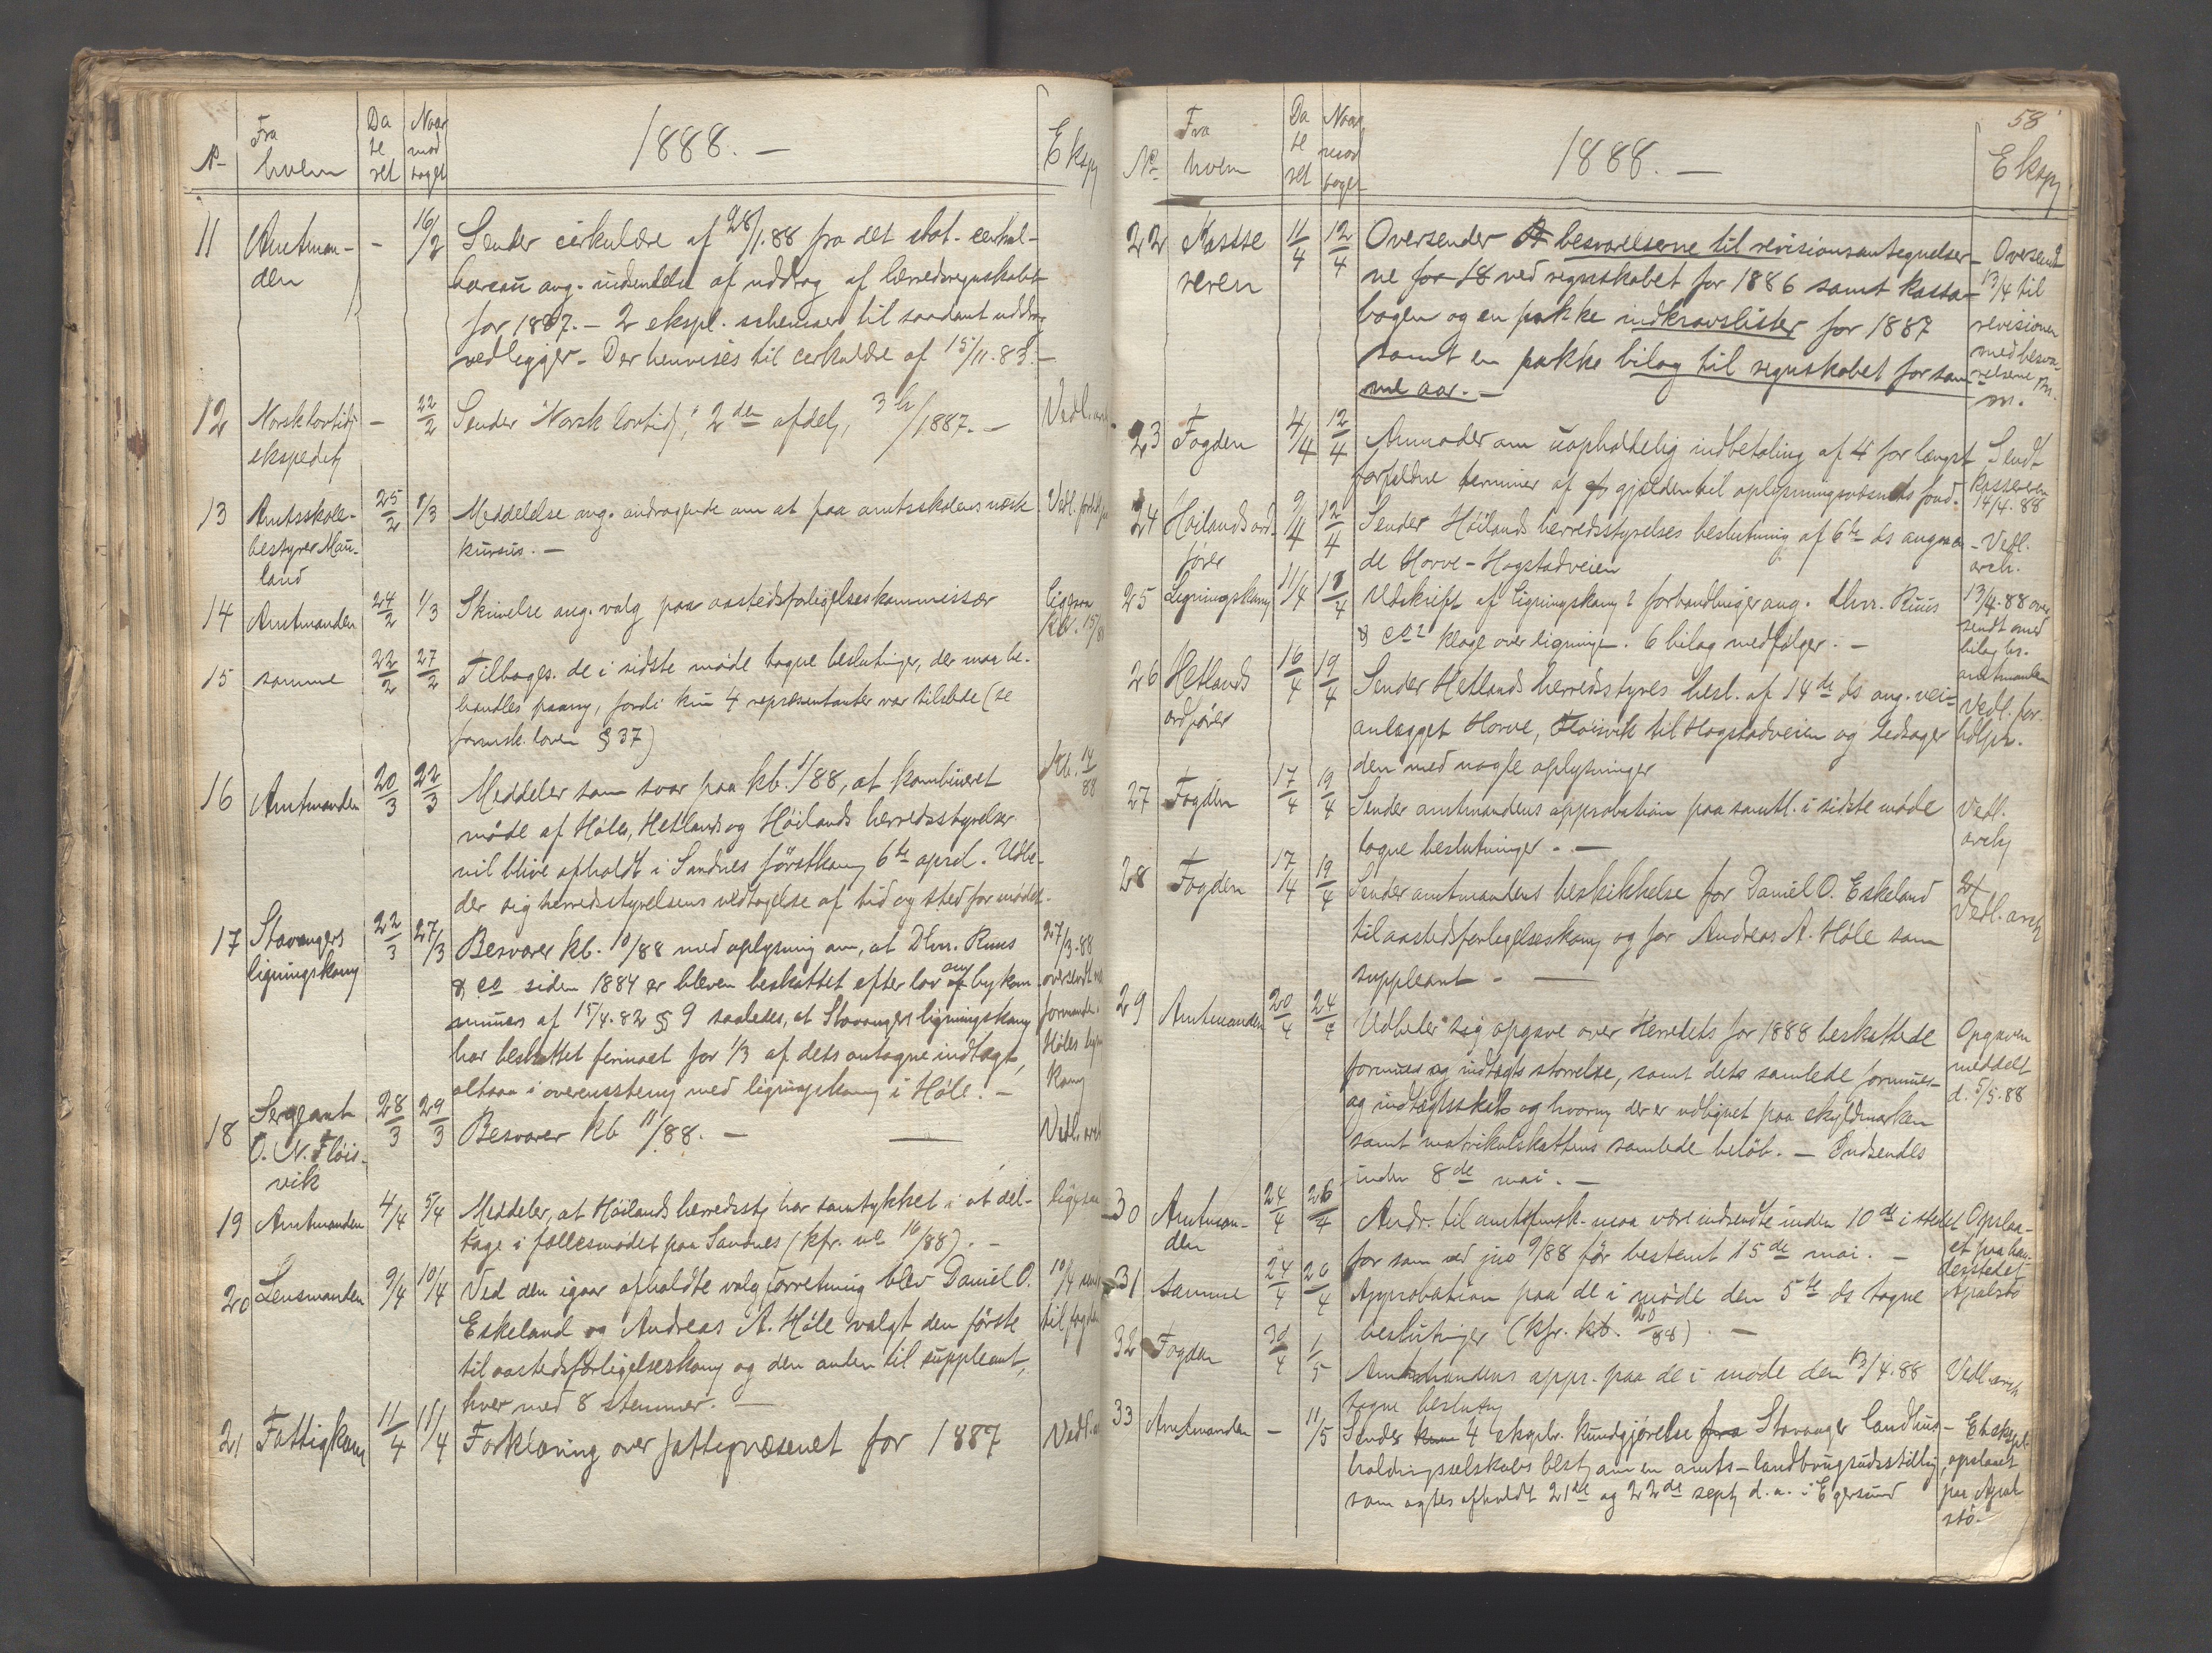 1888. —
No Fra hvem Dateret Naar modtaget Eksp
11 Amtman- – 16/2 Sender cirkulære af 28/1.88 fra det stat. central-
den bureau ang. indsendelse af uddrag af herredsregnskabet
for 1887. – 2 ekspl. schemaer til saadant uddrag
vedlegger. – Der henvises til cirkulære af 15/11.83. –
12 Norsk lovtid – 22/2 Sender "Norsk lovtid", 2den afdel, 3 h/1887. – Vedl.
eksped
13 Amtsskole- 25/2 1/3 Meddelelse ang. andragende om at faa amtsskolens næste Vedl.
bestyrer Mau- kursus. –
land
14 Amtmanden 24/2 1/3 Skrivelse ang. valg paa aastedsforligelseskommissær Ligesaa
15 samme 22/2 27/2 Tilbages. de i sidste møde tagne beslutninger, der maa be-
handles paany, fordi kun 4 repræsentanter var tilstede (se
formsk. loven § 37)
16 Amtmanden 20/3 22/3 Meddeler som svar paa kb. 1/88, at kombineret Kb. 14/88
møde af Høle, Hetlands og Höilands herredsstyrelser
vil blive afholdt i Sandnes førstkom 6te april. Udbe-
der sig herredsstyrelsens vedtagelse af tid og sted for mødet.
17 Stavangers 22/3 27/3 Besvarer kb. 10/88 med oplysning om, at Dhrr. Ruus 27/3.88
ligningskom & co siden 1884 er bleven beskattet efter lov om bykom- oversendt
munes af 15/4.82 § 9 saaledes, at Stavangers ligningskom formanden i
har beskattet firmaet for 1/3 af dets antagne indtægt, Höles lign
altsaa i overensstem med ligningskom i Höle. – kom
18 Sergeant 28/3 29/3 Besvarer kb 11/88. – — Vedl.
O. N. Flöis-
vik
19 Amtmanden 4/4 5/4 Meddeler, at Höilands herredsst har samtykket i at del- ligesaa
tage i fællesmödet paa Sandnes (kfr. no 16/88). –
20 Lensmanden 9/4 10/4 Ved den igaar afholdte valgforretning blev Daniel O. 10/4 sendt
Eskeland og Andreas A. Höle valgt den første til fogden
til aastedsforligelseskom og den anden til suppleant,
hver med 8 stemmer. —
21 Fattigkom 11/4 11/4 Forklaring over fattigvæsenet for 1887 Vedl.
58
1888. —
No Fra hvem Dateret Naar modtaget Eksp
22 Kasse 11/4 12/4 Oversender besvarelserne til revisionsantegnelser- Oversendt
reren ne for 18 ved regnskabet for 1886 samt kassa- 13/4 til
bogen og en pakke indkravslister for 1887 revisionen
samt en pakke bilag til regnskabet for sam- med besva-
me aar. – relserne m.
m.
23 Fogden 4/4 12/4 Anmoder om uopholdelig indbetaling af 4 for længst Sendt
forfaldne terminer af gjælden til oplysningsvæsenets fond. kassereren
14/4.88
24 Höilands ord- 9/4 12/4 Sender Höilands herredsstyrelses beslutning af 6te ds angaaen- Vedl.
förer de Horve-Hogstadveien arch.
25 Ligningskom 11/4 13/4 Udskrift af ligningskom? forhandlinger ang. Dhrr. Ruus 13/4.88 over
& co? klage over ligningen. 6 bilag medfølger. – sendt med
bilag hr.
amtmanden
26 Hetlands 16/4 19/4 Sender Hetlands herredsstyres besl. af 14de ds ang. vei- Vedl. for-
ordfører anlægget Horve, Flöisvik til Hogstadveien og ledsager
den med nogle oplysninger
27 Fogden 17/4 19/4 Sender amtmandens approbation paa samtl. i sidste möde Vedl.
tagne beslutninger. – arch
28 Fogden 17/4 19/4 Sender amtmandens beskikkelse for Daniel O. Eskeland Vedl. arch
til aastedsforligelseskom og for Andreas A. Höle som
suppleant. –
29 Amtmanden 20/4 24/4 Udbeder sig opgave over Herredets for 1888 beskattede Opgaven
formues og indtægts størrelse, samt dets samlede formues- meddelt
og indtægtsskat og hvorm der er udlignet paa skyldmarken d. 5/5.88
samt matrikulskattens samlede belöb. – Indsendes
inden 8de mai. –
30 Amtman- 24/4 26/4 Andr. til amtsformsk. maa være indsendte inden 10de i stedet Opslaa-
den for som ved jno 9/88 før bestemt 15de mai. – et paa han-
delsstedet
31 samme 24/4 26/4 Approbation paa de i møde den 5te ds tagne Apalstö
beslutninger (kfr. kb. 20/88). –
32 Fogden 30/4 1/5 Amtmandens appr. paa de i møde den 13/4.88 Vedl. arch
tagne beslutn
33 Amtmanden – 11/5 Sender 4 eksplr. kundgjørelse fra Stavanger landhus- Et ekspl.
holdningsselskabs best om en amts-landbrugsudstilling, opslaaet
som agtes afholdt 21de og 22de sept d. a. i Egersund paa Apal-
stö.